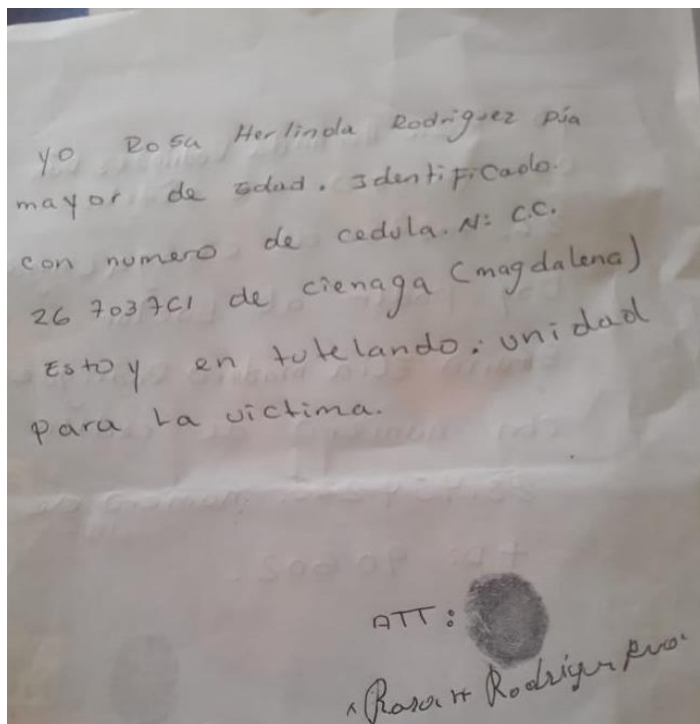 yo Rosa Herlinda Rodriguez púa
mayor de Edad. Identificado.
con numero de cedula. N: C.C.
26 703761 de cienaga (magdalena)
Estoy en tutelando. unidad
para La victima.
ATT:
Rosa H Rodrigu